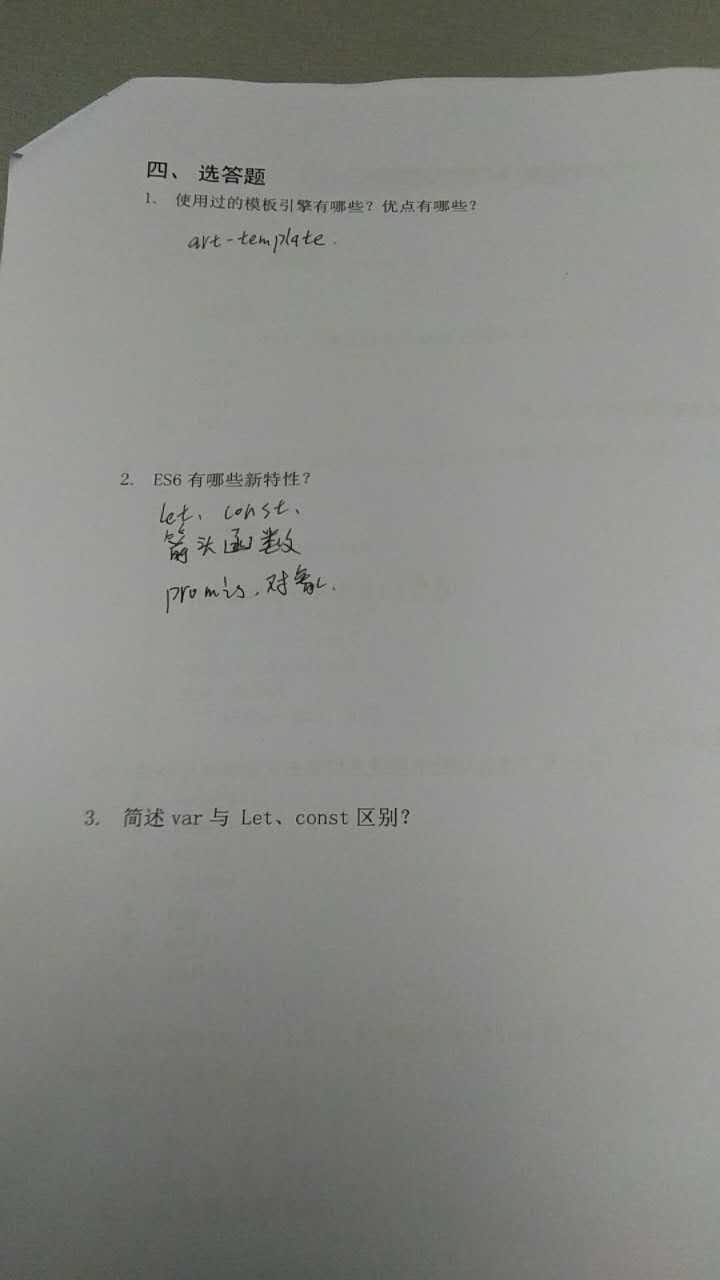 四、选答题
1. 使用过的模板引擎有哪些？优点有哪些？
art-template.
2. ES6 有哪些新特性？
let、const、
箭头函数
promis、对象.
3. 简述 var 与 Let、const 区别？